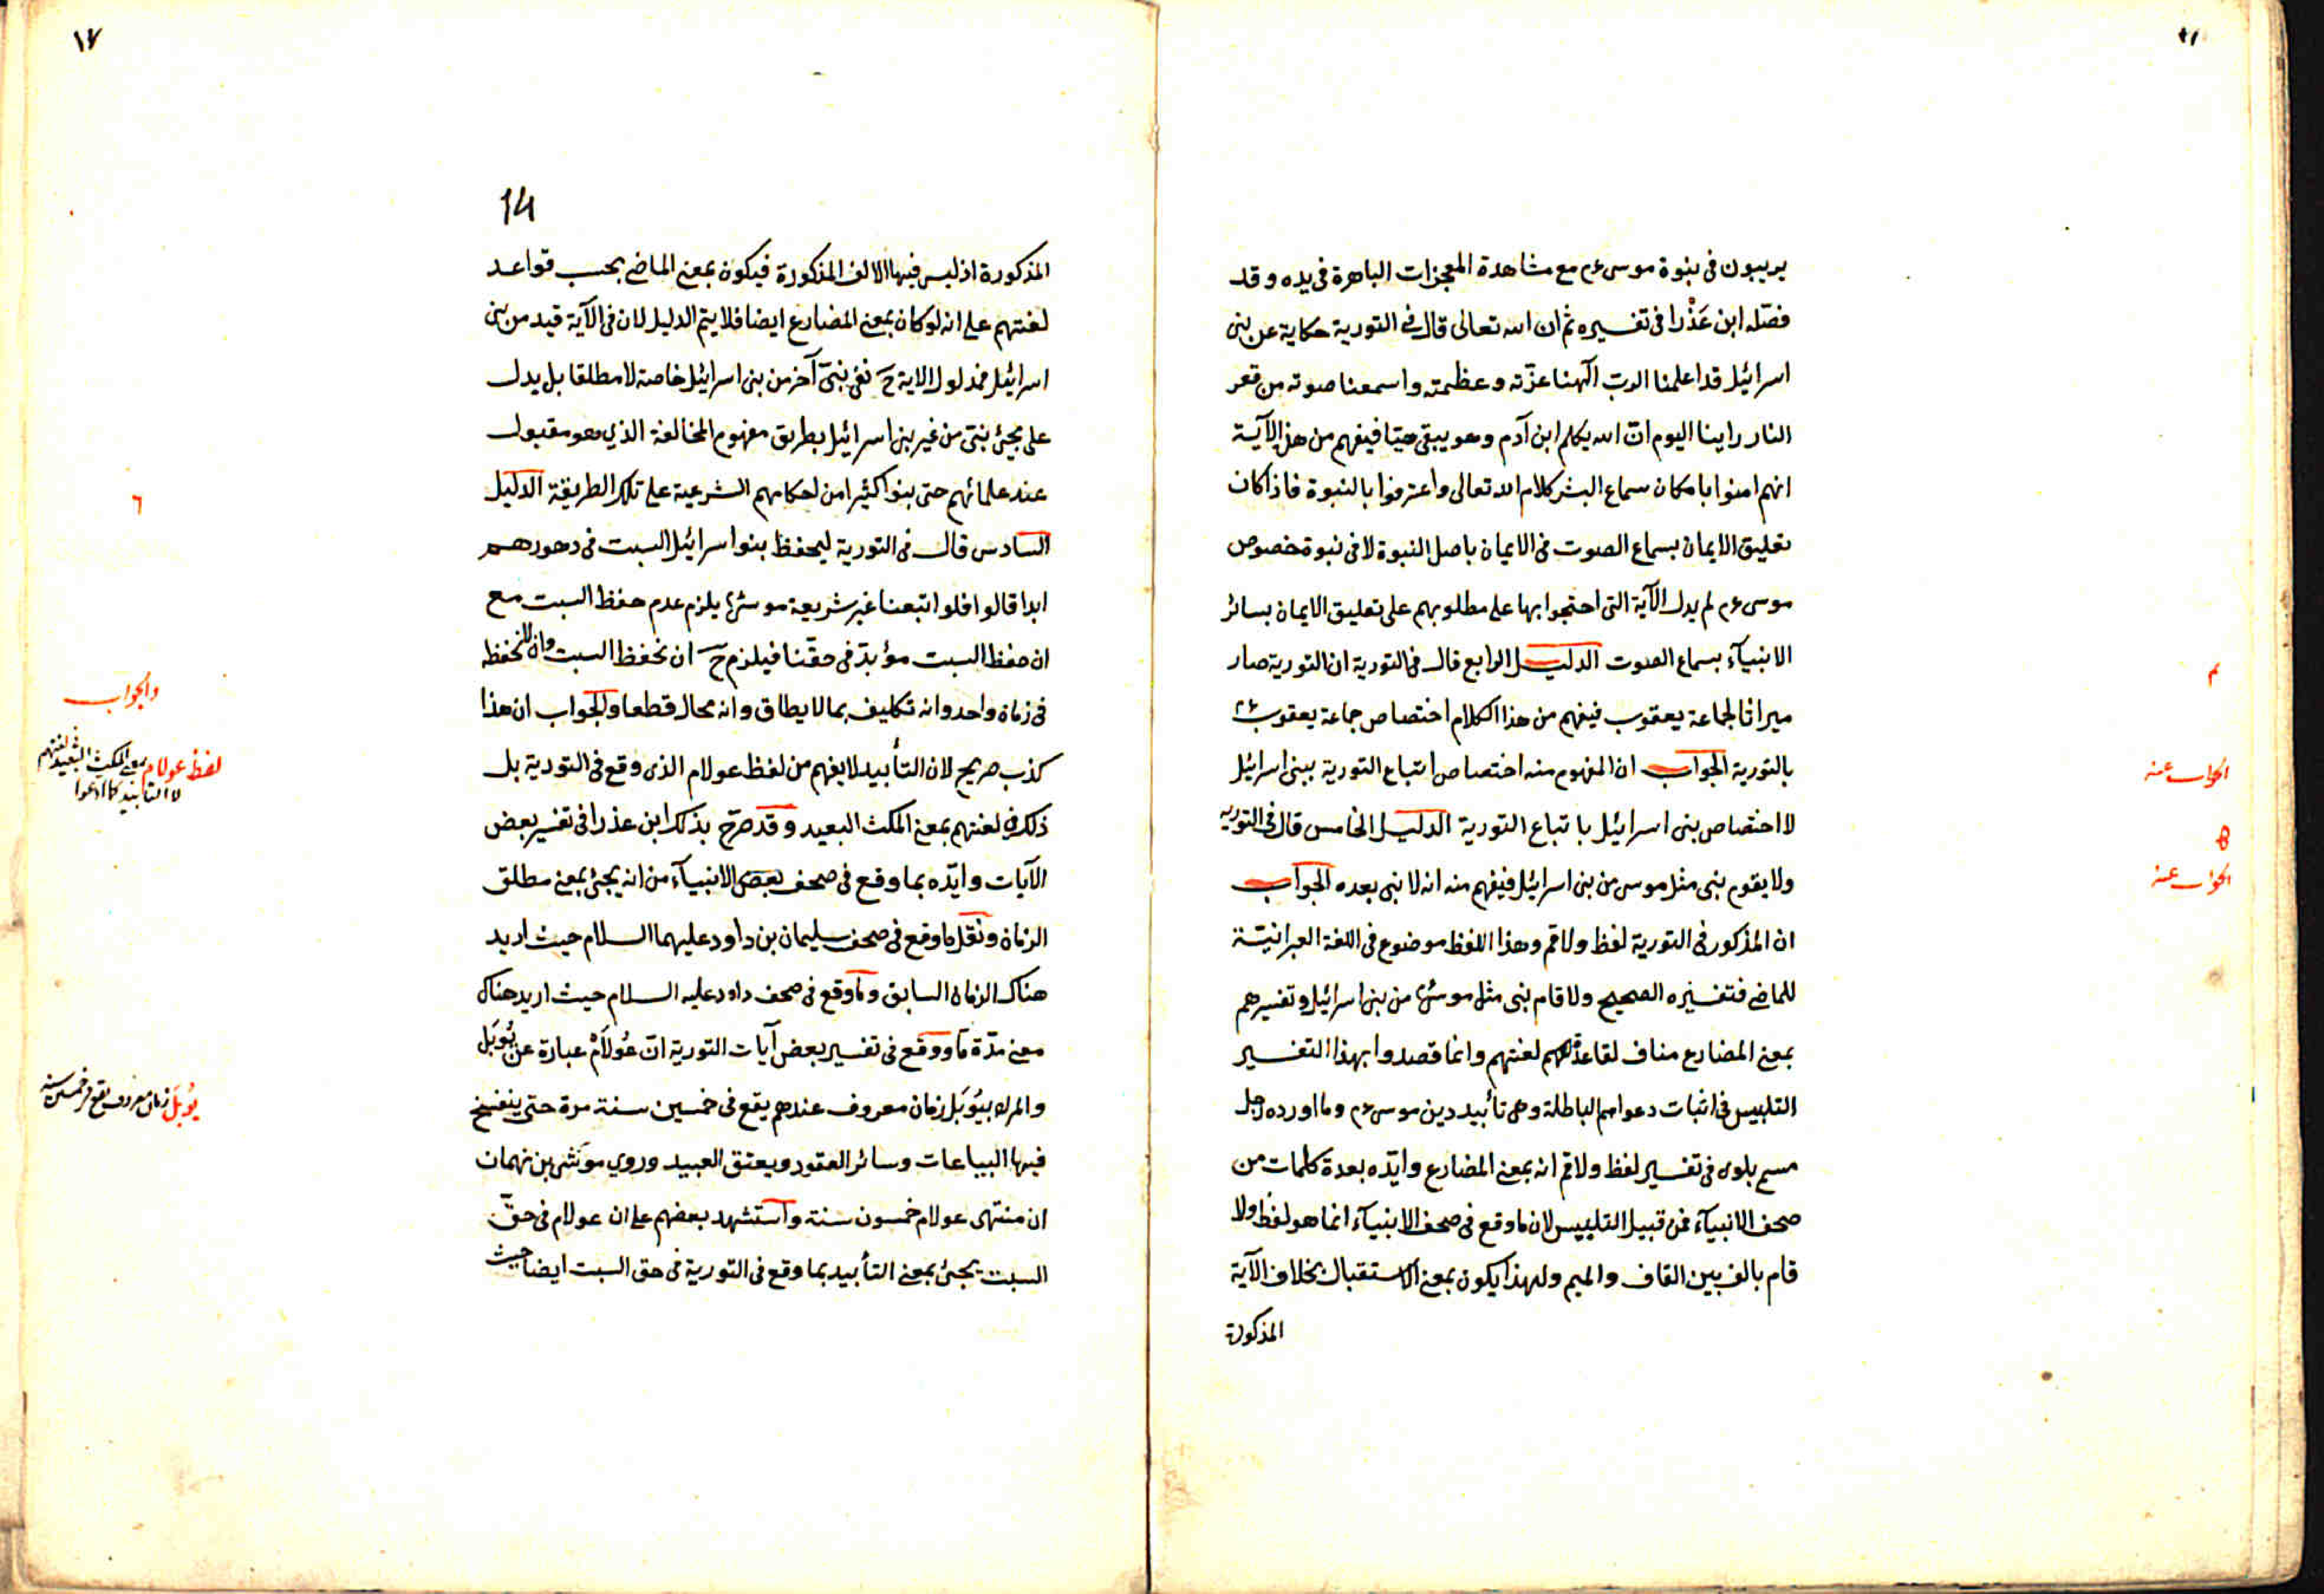 يريبون فى نبوة موسى ءم مع مشاهدة المعجزات الباهرة فى يده وقد
فصّله ابن عَذْرا فى تفسيره ثم ان الله تعالى قال فى التورية حكاية عن بنى
اسرائيل قد اعلمنا الرب آلهنا عزّته وعظمته واسمعنا صوته من قعر
النار راينا اليوم انّ الله يكلم ابن آدم وهو يبقى حيّا فيفهم من هذ الآية
انهم امنوا بامكان سماع البشر كلام الله تعالى واعترفوا بالنبوة فاذا كان
تعليق الايمان بسماع الصوت فى الايمان باصل النبوة لا فى نبوة خصوص
موسى ءم لم يدل الآية التى احتجوا بها على مطلوبهم على تعليق الايمان بسائر
الانبيآء بسماع الصوت الدليل الرابع قال فى التورية ان التورية صار
ميراثا لجماعة يعقوب فيفهم من هذا الكلام اختصاص جماعة يعقوب ءم
بالتورية الجواب ان المفهوم منه اختصاص اتباع التورية ببنى اسرائيل
لا اختصاص بنى اسرائيل باتباع التورية الدليل الخامس قال فى التوريه
ولا يقوم نبى مثل موسى من بنى اسرائيل فيفهم منه انه لا نبى بعده الجواب
ان المذكور فى التورية لفظ ولاقم وهذا اللفظ موضوع فى اللغة العبرانيّة
للماضى فتفسيره الصحيح ولا قام نبى مثل موسى من بنى اسرائيل وتفسيرهم
بمعنى المضارع مناف لقاعدة لغتهم وانما قصدوا بهذا التفسير
التلبيس فى اثبات دعواهم الباطلة وهى تأبيد دين موسى ءم وما اورده رجل
مسمى بلوى فى تفسير لفظ ولاقم انه بمعنى المضارع وايّده بعدة كلمات من
صحف الانبيآء فمن قبيل التلبيس لان ما وقع فى صحف الانبيآء انما هو لفظ ولا
قام بالف بين القاف والميم ولهذا يكون بمعنى الاستقبال بخلاف الآية
المذكورة
٤
الجواب عنه
الجواب عنه
١٧
14
المذكورة اذ ليس فيها الالف المذكورة فيكون بمعنى الماضى بحسب قواعد
لغتهم على انه لو كان بمعنى المضارع ايضا فلا يتم الدليل لان فى الآية قيد من بنى
اسرائيل فمدلول الاية ح نفى نبىّ آخر من بنى اسرائيل خاصة لا مطلقا بل يدل
على مجئ نبى من غير بنى اسرائيل بطريق مفهوم المخالفة الذي هو مقبول
عند علمائهم حتى بنوا كثيرا من احكامهم الشرعية على تلك الطريقة الدليل
السادس قال فى التورية ليحفظ بنو اسرائيل السبت فى دهورهم
ابدا قالوا فلو اتبعنا غير شريعة موسى يلزم عدم حفظ السبت مع
ان حفظ السبت مؤبد فى حقنا فيلزم ح ان نحفظ السبت وان لا نحفظه
فى زمان واحد وانه تكليف بما لا يطاق وانه محال قطعا والجواب ان هذا
كذب صريح لان التأبيد لا يفهم من لفظ عولام الذى وقع فى التورية بل
ذلك فى لغتهم بمعنى المكث البعيد وقد صرّح بذلك ابن عذرا فى تفسير بعض
الآيات وايّده بما وقع فى صحف بعض الانبيآء من انه يجئ بمعنى مطلق
الزمان ونقل ما وقع فى صحف سليمان بن داود عليهما السلام حيث اريد
هناك الزمان السابق وما وقع فى صحف داود عليه السلام حيث اريد هناك
معنى مدّة ما ووقع فى تفسير بعض آيات التورية انّ عُولاَمْ عبارة عن يُوبَل
والمراد بيُوبَل زمان معروف عندهم يقع فى خمسين سنة مرة حتى ينفسخ
فيها البياعات وسائر العقود ويعتق العبيد وروي موشى بن نهمان
ان منتهى عولام خمسون سنة واستشهد بعضهم على ان عولام فى حقّ
السبت يجئ بمعنى التأبيد بما وقع فى التورية فى حق السبت ايضا حيث
٦
والجواب
لفظ عولام بمعنى المكث البعيد فى لغتهم
لا التأبيد كما ادعوا
يُوبَل زمان معروف يقع فى خمسين سنه